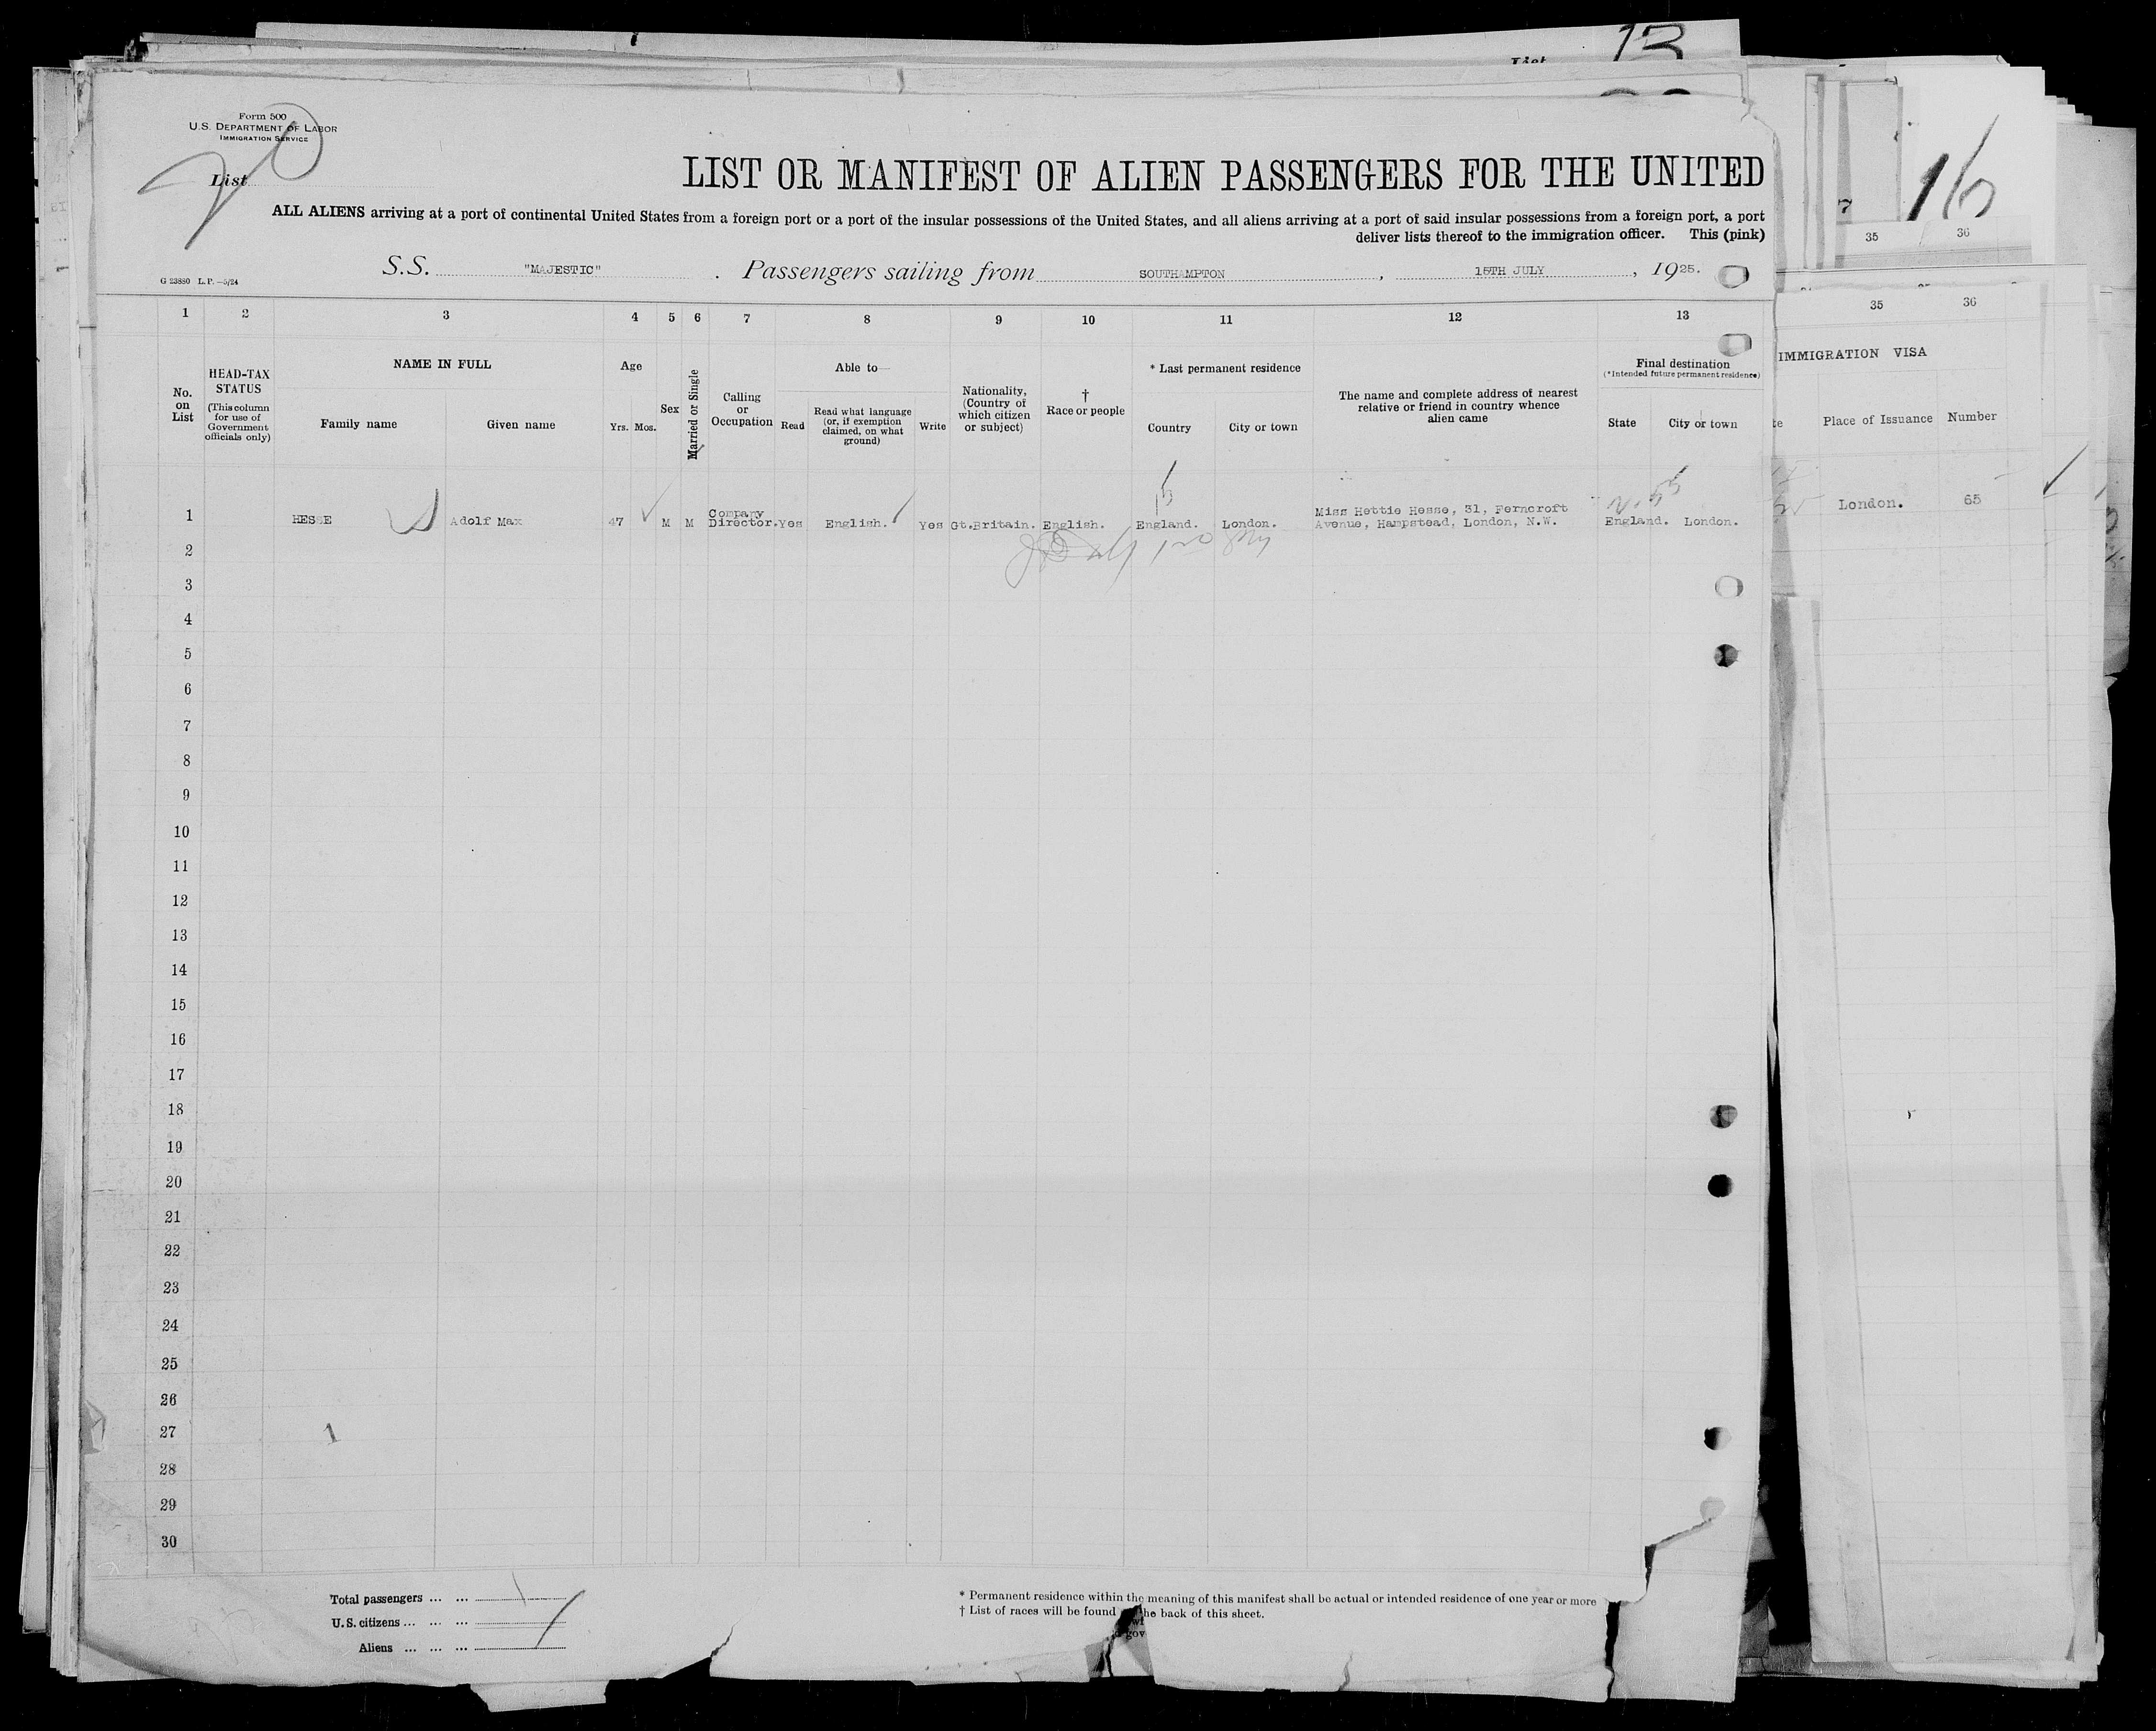 List 13
Form 500
U.S. DEPARTMENT OF LABOR
IMMIGRATION SERVICE
List
LIST OR MANIFEST OF ALIEN PASSENGERS FOR THE UNITED
ALL ALIENS arriving at a port of continental United States from a foreign port or a port of the insular possessions of the United States, and all aliens arriving at a port of said insular possessions from a foreign port, a port
deliver lists thereof to the immigration officer. This (pink)
S.S. "MAJESTIC" . Passengers sailing from SOUTHAMPTON , 15TH JULY , 1925.
G 23880 L.P.—5/24
1 2 3 4 5 6 7 8 9 10 11 12 13
No. on List
HEAD-TAX STATUS
(This column for use of Government officials only)
NAME IN FULL
Family name Given name
Age
Yrs. Mos.
Sex
Married or Single
Calling or Occupation
Able to—
Read
Read what language (or, if exemption claimed, on what ground)
Write
Nationality, (Country of which citizen or subject)
† Race or people
* Last permanent residence
Country City or town
The name and complete address of nearest relative or friend in country whence alien came
Final destination
(*Intended future permanent residence)
State City or town
1 HESSE Adolf Max 47 M M Company Director. Yes English. Yes Gt.Britain. English. England. London. Miss Hettie Hesse, 31, Ferncroft Avenue, Hampstead, London, N.W. England. London.
2
3
4
5
6
7
8
9
10
11
12
13
14
15
16
17
18
19
20
21
22
23
24
25
26
27 1
28
29
30
Total passengers ... ... 1
U.S. citizens ... ... ...
Aliens ... ... ... 1
* Permanent residence within the meaning of this manifest shall be actual or intended residence of one year or more
† List of races will be found he back of this sheet.
gov
16
7
35 36
35 36
IMMIGRATION VISA
te Place of Issuance Number
London. 65